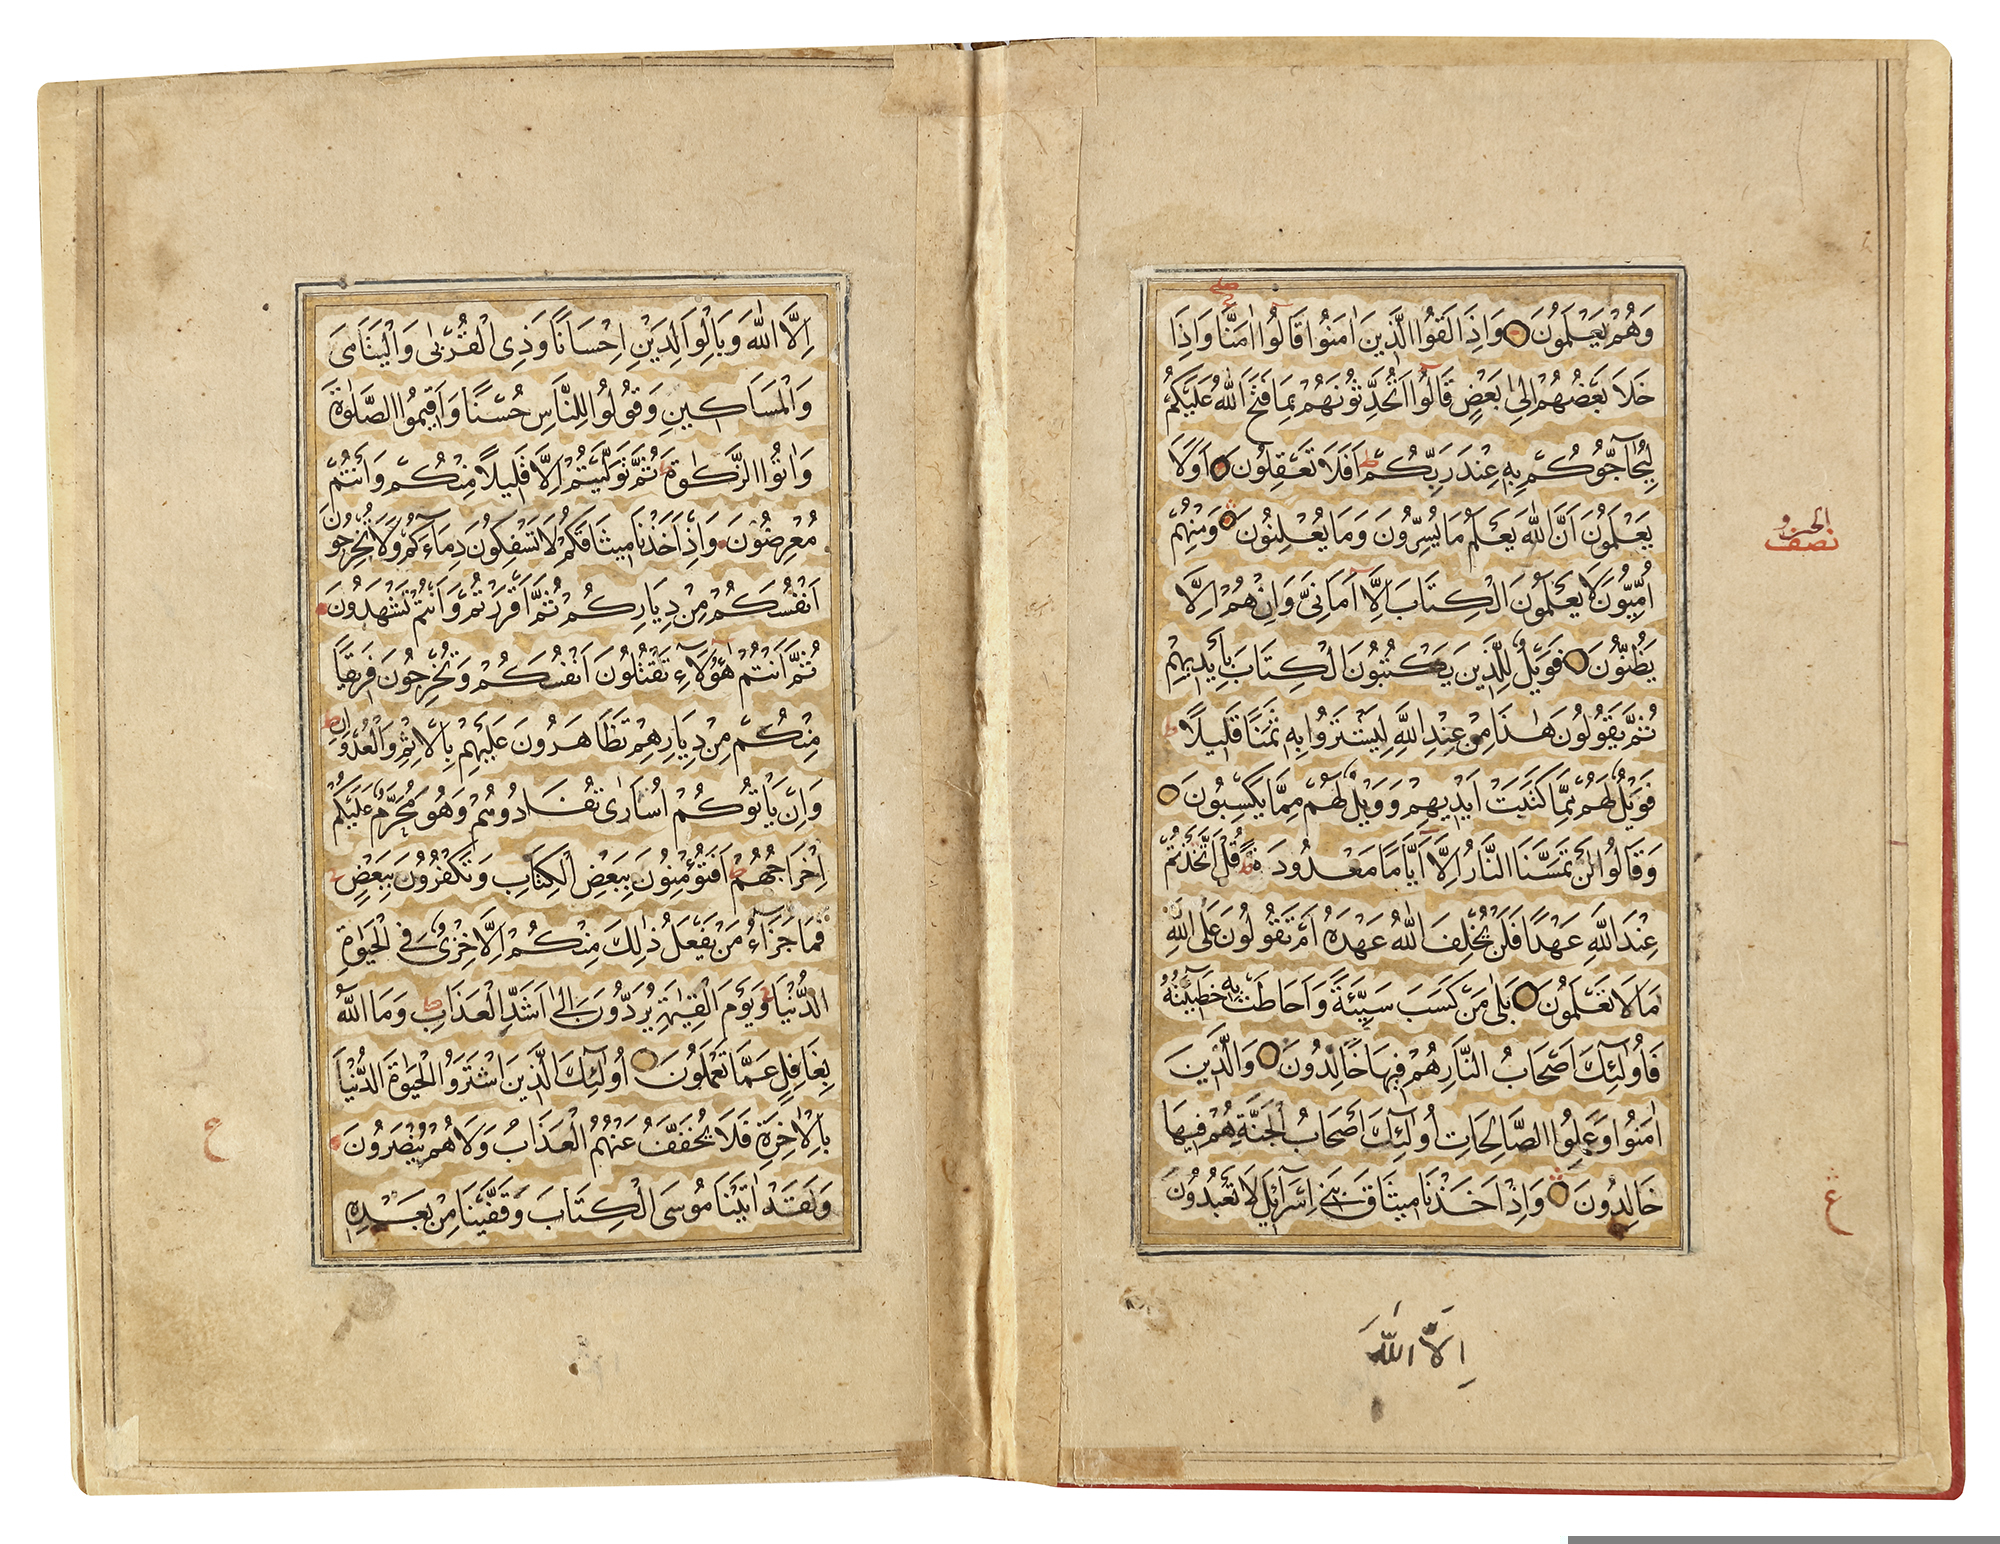 وَهُمْ يَعْلَمُونَ وَاِذَا لَقُوا الَّذِينَ اٰمَنُوا قَالُوا اٰمَنَّا وَاِذَا
خَلَا بَعْضُهُمْ اِلٰى بَعْضٍ قَالُوا اَتُحَدِّثُونَهُمْ بِمَا فَتَحَ اللّٰهُ عَلَيْكُمْ
لِيُحَاجُّوكُمْ بِهِ عِنْدَ رَبِّكُمْ ط اَفَلَا تَعْقِلُونَ اَوَلَا
يَعْلَمُونَ اَنَّ اللّٰهَ يَعْلَمُ مَا يُسِرُّونَ وَمَا يُعْلِنُونَ وَمِنْهُمْ
اُمِّيُّونَ لَا يَعْلَمُونَ الْكِتَابَ اِلَّا اَمَانِيَّ وَاِنْ هُمْ اِلَّا
يَظُنُّونَ فَوَيْلٌ لِلَّذِينَ يَكْتُبُونَ الْكِتَابَ بِاَيْدِيهِمْ
ثُمَّ يَقُولُونَ هٰذَا مِنْ عِنْدِ اللّٰهِ لِيَشْتَرُوا بِهِ ثَمَنًا قَلِيلًا ط
فَوَيْلٌ لَهُمْ مِمَّا كَتَبَتْ اَيْدِيهِمْ وَوَيْلٌ لَهُمْ مِمَّا يَكْسِبُونَ
وَقَالُوا لَنْ تَمَسَّنَا النَّارُ اِلَّا اَيَّامًا مَعْدُودَةً ط قُلْ اَتَّخَذْتُمْ
عِنْدَ اللّٰهِ عَهْدًا فَلَنْ يُخْلِفَ اللّٰهُ عَهْدَهُ اَمْ تَقُولُونَ عَلَى اللّٰهِ
مَا لَا تَعْلَمُونَ بَلٰى مَنْ كَسَبَ سَيِّئَةً وَاَحَاطَتْ بِهِ خَطِيئَتُهُ
فَاُولٰئِكَ اَصْحَابُ النَّارِ هُمْ فِيهَا خَالِدُونَ وَالَّذِينَ
اٰمَنُوا وَعَمِلُوا الصَّالِحَاتِ اُولٰئِكَ اَصْحَابُ الْجَنَّةِ هُمْ فِيهَا
خَالِدُونَ وَاِذْ اَخَذْنَا مِيثَاقَ بَنِي اِسْرَآئِيلَ لَا تَعْبُدُونَ
اِلَّا اللّٰهَ
نصف
الحزب
ع
اِلَّا اللّٰهَ وَبِالْوَالِدَيْنِ اِحْسَانًا وَذِي الْقُرْبٰى وَالْيَتَامٰى
وَالْمَسَاكِينِ وَقُولُوا لِلنَّاسِ حُسْنًا وَاَقِيمُوا الصَّلٰوةَ
وَاٰتُوا الزَّكٰوةَ ط ثُمَّ تَوَلَّيْتُمْ اِلَّا قَلِيلًا مِنْكُمْ وَاَنْتُمْ
مُعْرِضُونَ وَاِذْ اَخَذْنَا مِيثَاقَكُمْ لَا تَسْفِكُونَ دِمَآءَكُمْ وَلَا تُخْرِجُونَ
اَنْفُسَكُمْ مِنْ دِيَارِكُمْ ثُمَّ اَقْرَرْتُمْ وَاَنْتُمْ تَشْهَدُونَ
ثُمَّ اَنْتُمْ هٰؤُلَآءِ تَقْتُلُونَ اَنْفُسَكُمْ وَتُخْرِجُونَ فَرِيقًا
مِنْكُمْ مِنْ دِيَارِهِمْ تَظَاهَرُونَ عَلَيْهِمْ بِالْاِثْمِ وَالْعُدْوَانِ ط
وَاِنْ يَاْتُوكُمْ اُسَارٰى تُفَادُوهُمْ وَهُوَ مُحَرَّمٌ عَلَيْكُمْ
اِخْرَاجُهُمْ ط اَفَتُؤْمِنُونَ بِبَعْضِ الْكِتَابِ وَتَكْفُرُونَ بِبَعْضٍ ج
فَمَا جَزَآءُ مَنْ يَفْعَلُ ذٰلِكَ مِنْكُمْ اِلَّا خِزْيٌ فِي الْحَيٰوةِ
الدُّنْيَا ج وَيَوْمَ الْقِيٰمَةِ يُرَدُّونَ اِلٰى اَشَدِّ الْعَذَابِ ط وَمَا اللّٰهُ
بِغَافِلٍ عَمَّا تَعْمَلُونَ اُولٰئِكَ الَّذِينَ اشْتَرَوُا الْحَيٰوةَ الدُّنْيَا
بِالْاٰخِرَةِ فَلَا يُخَفَّفُ عَنْهُمُ الْعَذَابُ وَلَا هُمْ يُنْصَرُونَ
وَلَقَدْ اٰتَيْنَا مُوسَى الْكِتَابَ وَقَفَّيْنَا مِنْ بَعْدِهِ
ع